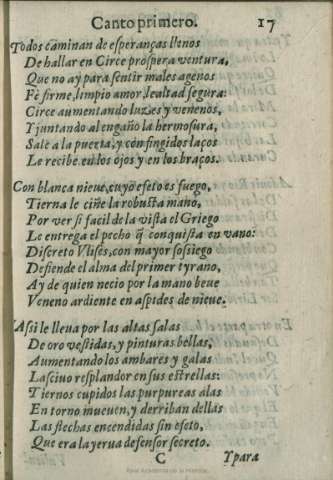 Canto primero. 17
Todos caminan de esperanças llenos
De hallar en Circe prospera ventura,
Que no ay para sentir males agenos
Fè firme, limpio amor, lealtad segura:
Circe aumentando luzes y venenos,
Y juntando al engaño la hermosura,
Sale a la puerta, y con fingidos laços
Le recibe en los ojos y en los braços.
Con blanca nieve, cuyo efeto es fuego,
Tierna le ciñe la robusta mano,
Por ver si facil de la vista el Griego
Le entrega el pecho q̃ conquista en vano:
Discreto Vlises, con mayor sosiego
Defiende el alma del primer tyrano,
Ay de quien necio por la mano beue
Veneno ardiente en aspides de nieue.
Assi le lleua por las altas salas
De oro vestidas, y pinturas bellas,
Aumentando los ambares y galas
Lasciuo resplandor en sus estrellas:
Tiernos cupidos las purpureas alas
En torno mueuen, y derriban dellas
Las flechas encendidas sin efeto,
Que era la yerua defensor secreto.
C Y para